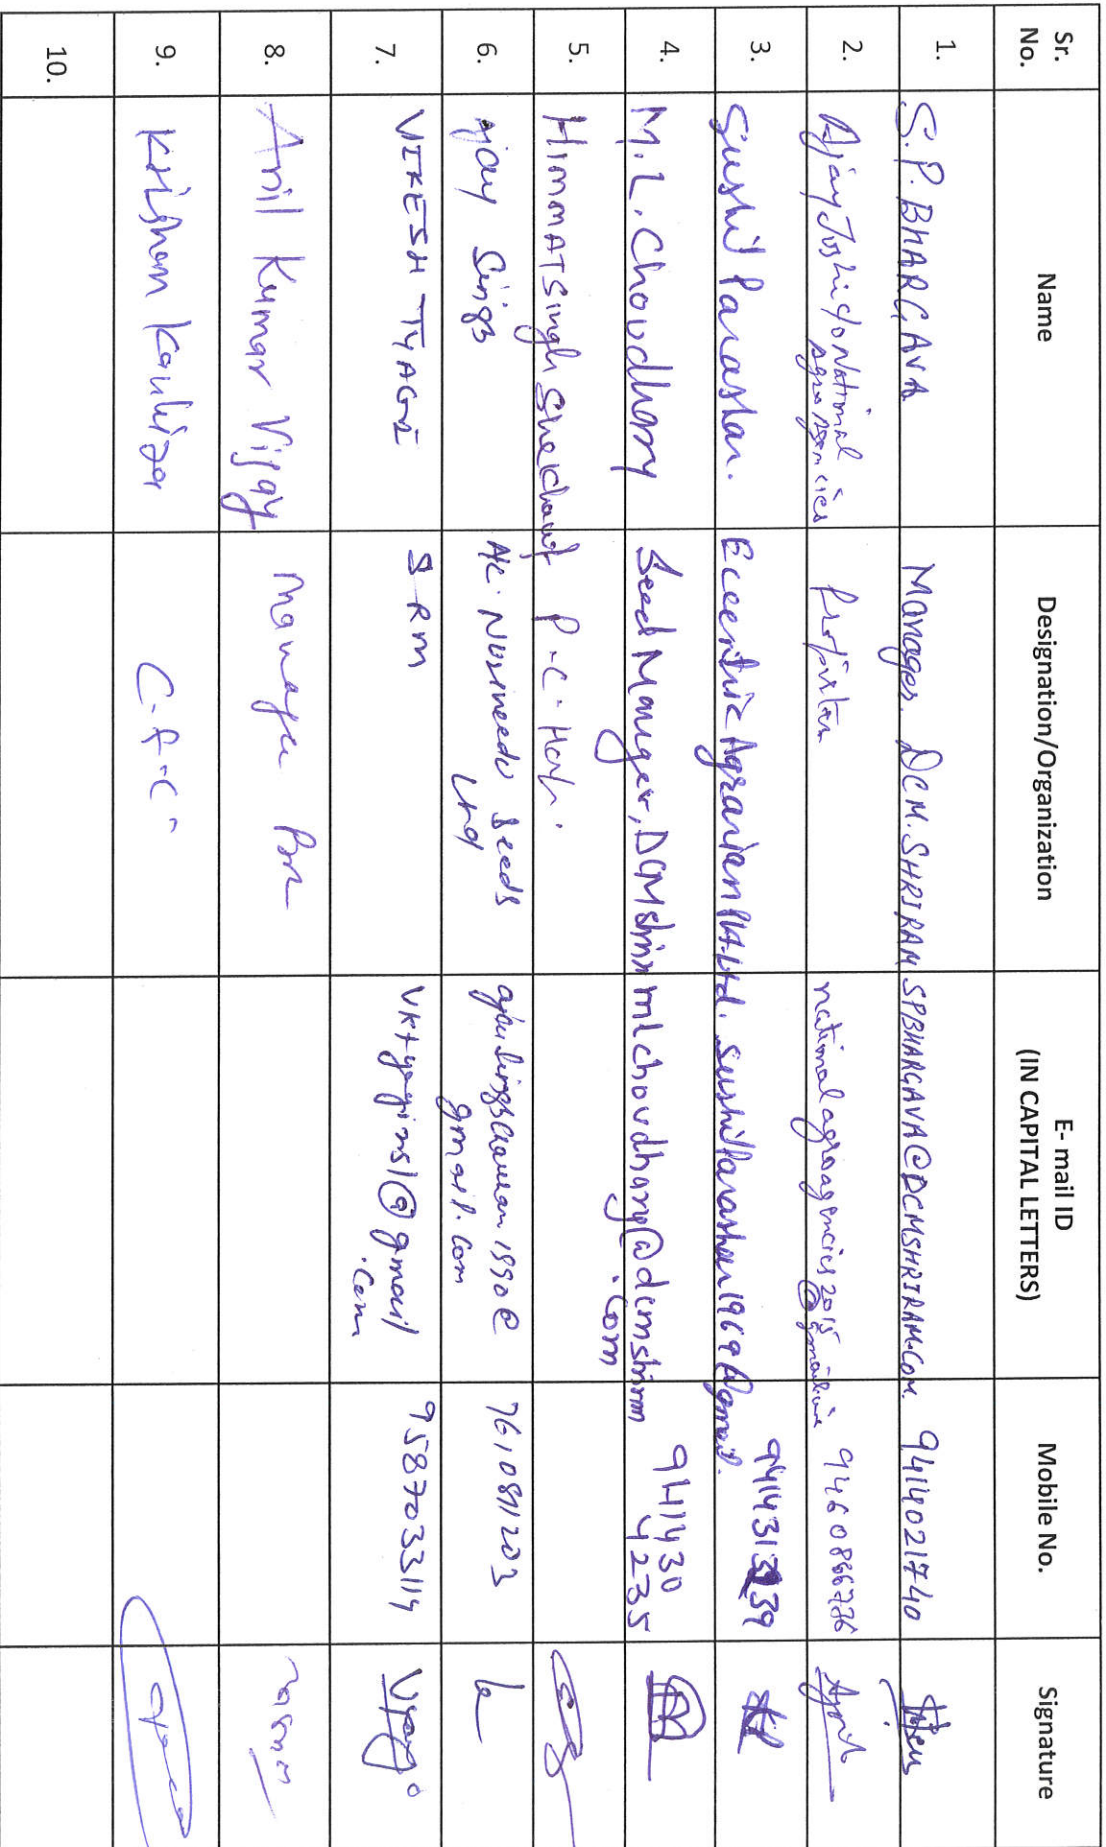 Sr. No. Name Designation/Organization E- mail ID (IN CAPITAL LETTERS) Mobile No. Signature
1. S.P. BHARGAVA Manager. DCM. SHRIRAM SPBHARGAVA@DCMSHRIRAM.COM. 9414021740
2. Ajay Joshi c/o National Agro Agencies nationalagroagencies2015 9460886776
3. Sushil Parashar. Eccentric Agrarian Pvt. Ltd. sushilparashar1969@gmail.
4. M.L. Choudhary Seed Manger, DCM Shrirm mlchoudhary@dcmshrirm.com 941430 4235
5. HIMMAT Singh Shekhawat P.C.
6. Ajay Singh Nuziveedu Seeds Ltd 1990@gmail.com 7610811203
7. VIKESH TYAGI SRM vktyaginsl@gmail.com 9587033114
8. Anil Kumar Vijay Manager
9. Krishan
10.